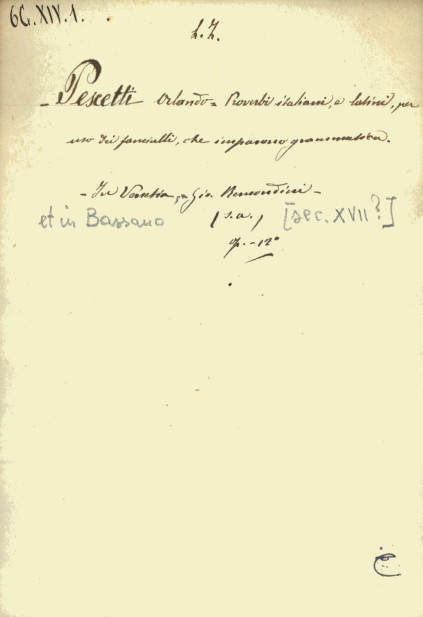 6C.XIV.1.
L.Z.
- Pescetti Orlando = Proverbi italiani, e latini, per
uso dei fanciulli, che imparono grammatica.
- In Venetia, Gio. Remondini -
et in Bassano (s.a.) [sec. XVII?]
12°